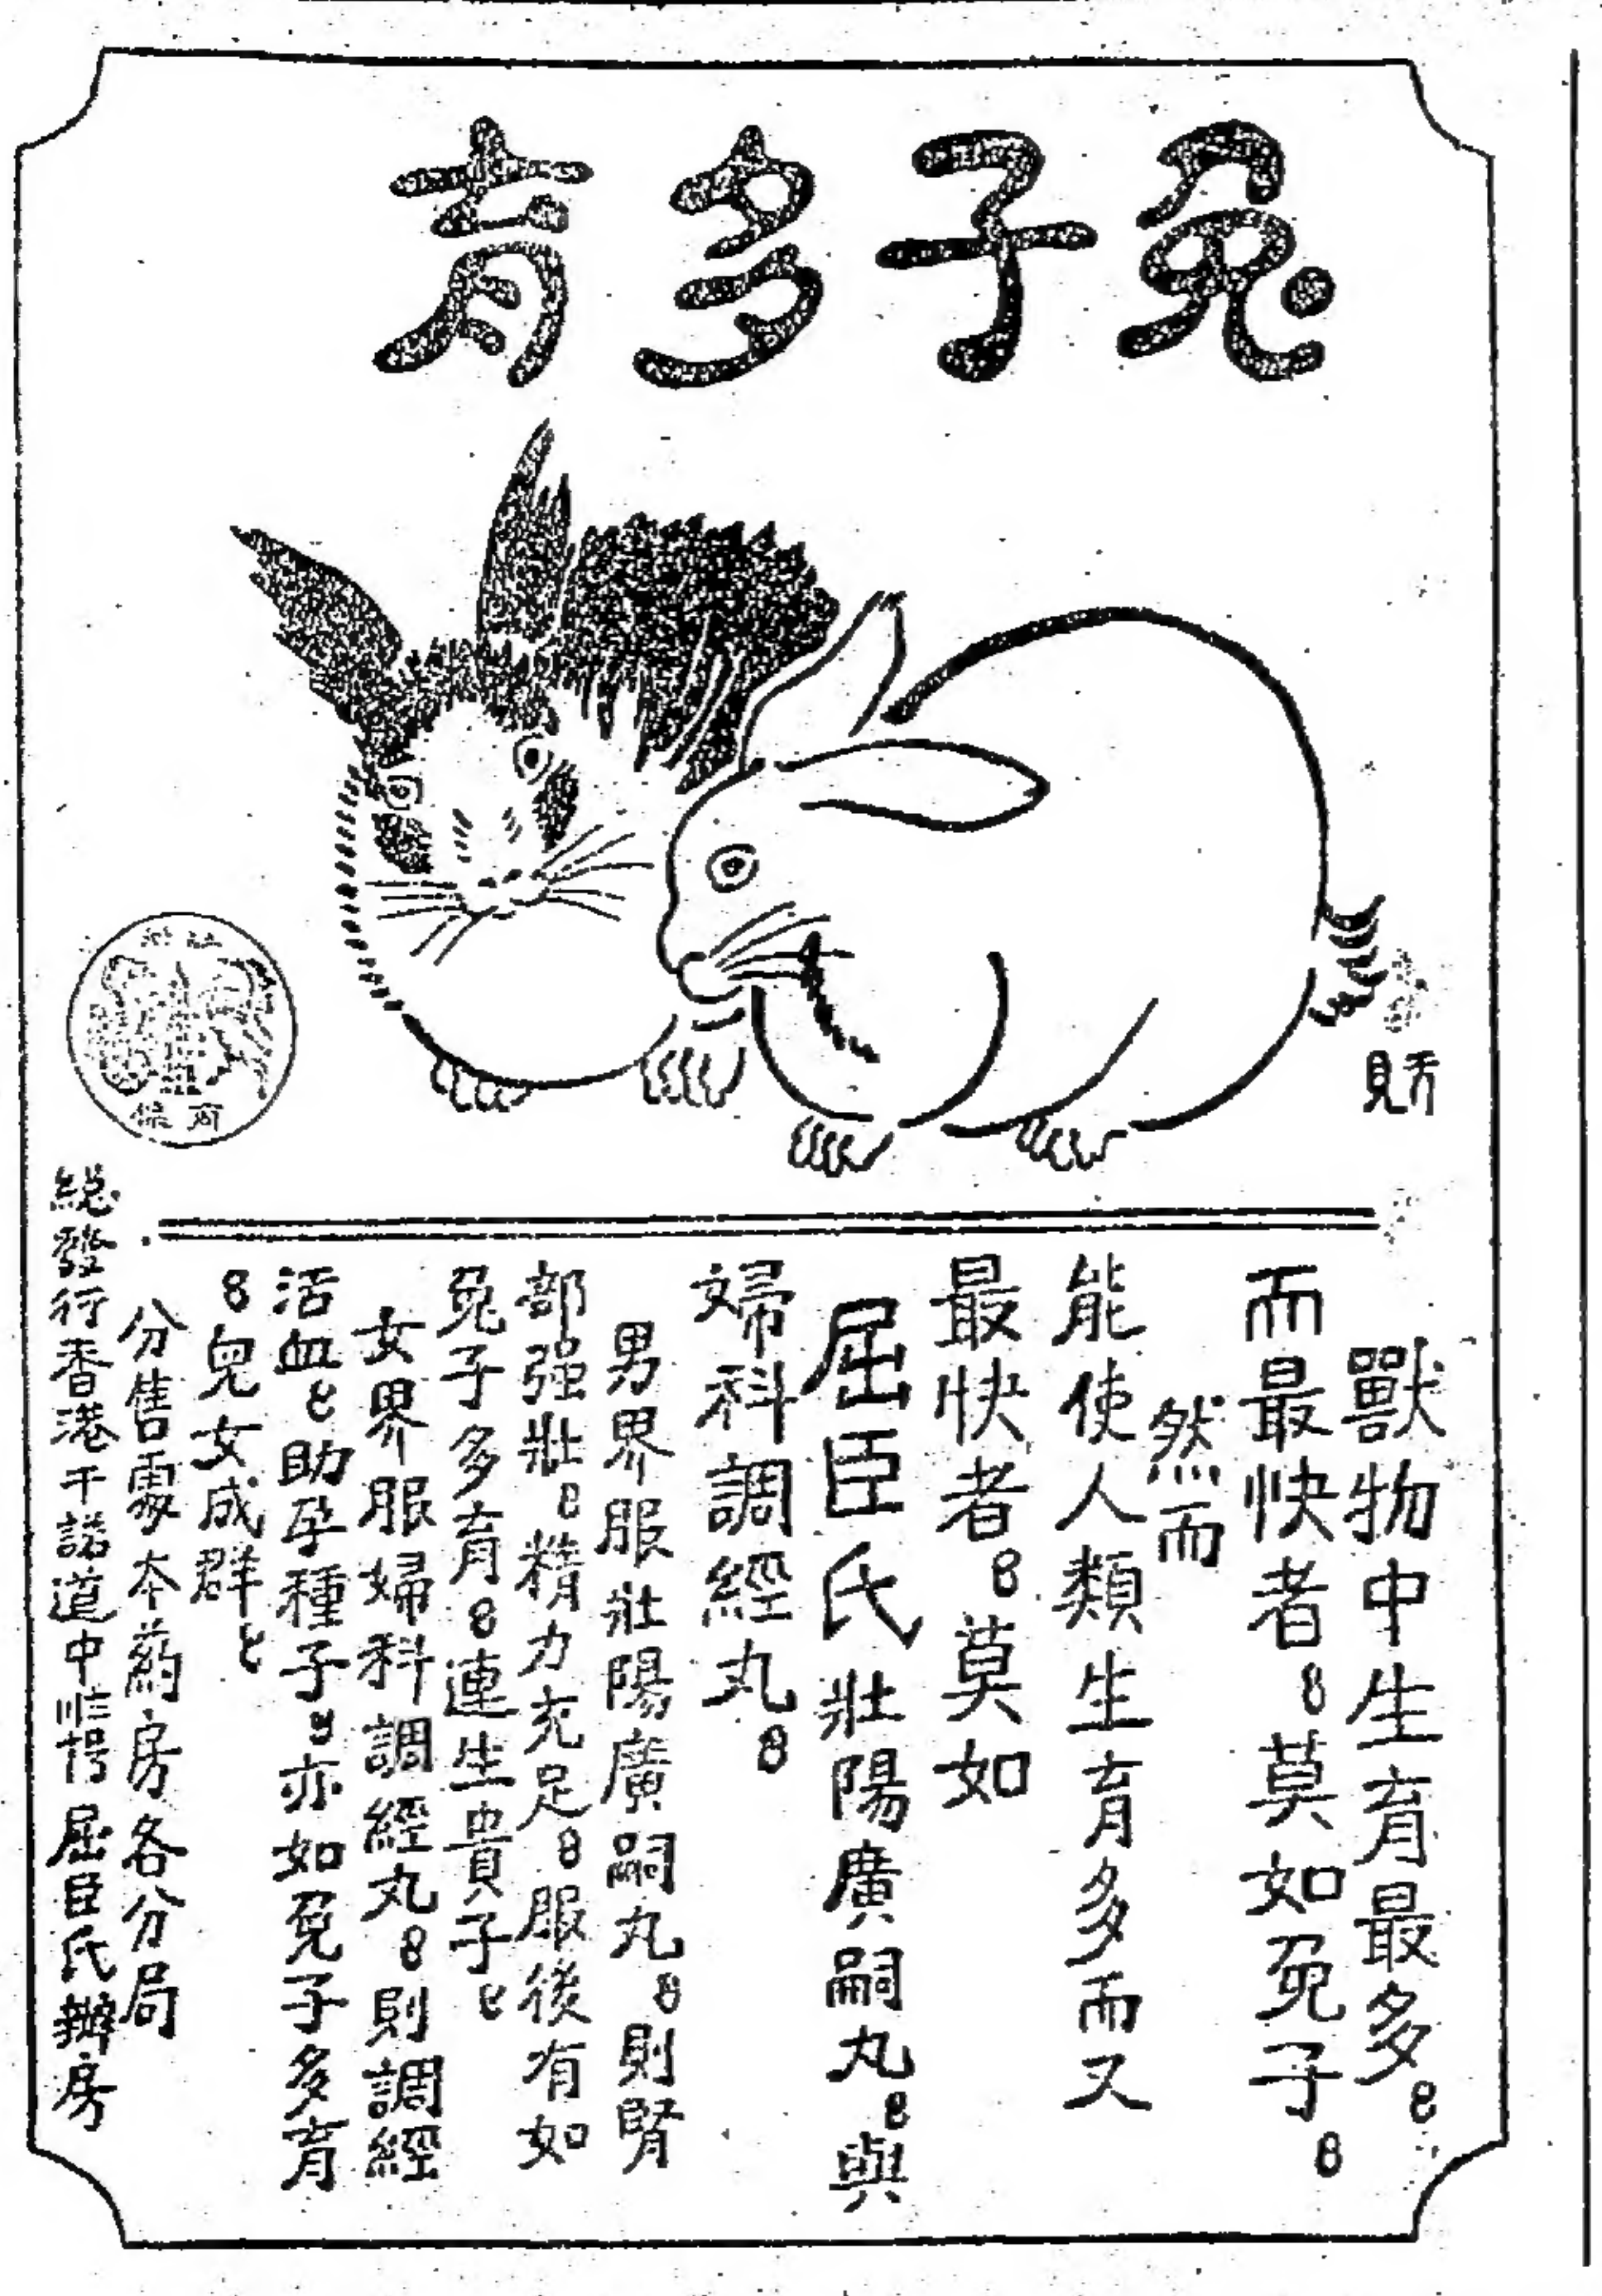 兔子多育
獸物中生育最多。
而最快者。莫如兔子。
然而
能使人類生育多而又
最快者。莫如
屈臣氏壯陽廣嗣丸。與
婦科調經丸。
男界服壯陽廣嗣丸。則腎
部强壯。精力充足。服後有如
兔子多育。連生貴子。
女界服婦科調經丸。則調經
活血。助孕種子。亦如兔子多育
。兒女成群。
分售處本葯房各分局
總發行香港干諾道中 屈臣氏葯房
商保